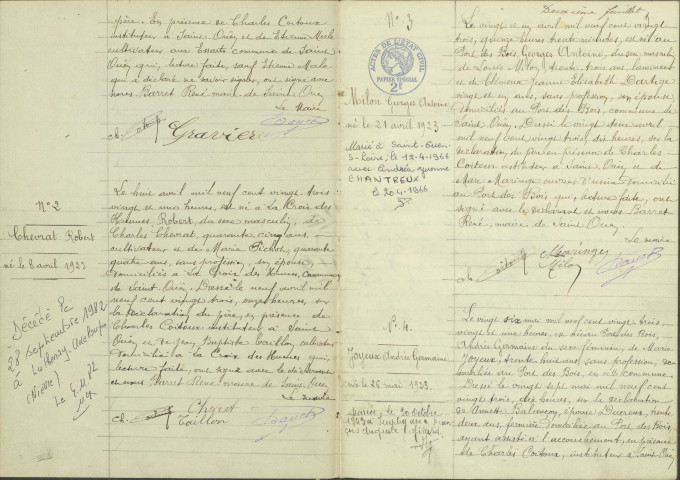 père. En présence de Charles Coitoux
instituteur à Saint Ouën et de Etienne
cultivateur aux Essarts commune de Saint
Ouën, qui, lecture faite, sauf Etienne
qui a déclaré ne savoir signer, ont signé avec
nous. Barret René maire de Sainte Ouën
Le Maire
Gravier
N° 2
Chevrat Robert
né le 8 avril 1923
Décédé le
28 Septembre 1982
à
(Nièvre)
Le huit avril mil neuf cent vingt trois
vingt et une heures, est né à La Croix des
Hennes, Robert, du sexe masculin, de
Charles Chevrat, quarante cinq ans,
cultivateur et de Marie Pichot, quarante
quatre ans, sans profession, son épouse,
domiciliés à La Croix des Hennes, commune
de Saint Ouën. Dressé le neuf avril mil
neuf cent vingt trois, onze heures, sur
la déclaration du père, en présence de
Charles Coitoux instituteur à Saint
Ouën et de Jean Baptiste Taillon, cultivateur
domicilié à la Croix des Hennes qui,
lecture faite, ont signé avec le déclarant
et nous Barret René, maire de Saint Ouën
Le Maire
Chevrat
Taillon
Deuxième feuillet
N° 3
ACTES DE L'ETAT CIVIL
PAPIER SPÉCIAL
2F
Milon Georges Antoine
né le 21 avril 1923
Marié à Saint-Ouen
S-Loire, le 12-4-1966
avec Andrée
CHANTREUX
le 20-4-1966
Le vingt et un avril mil neuf cent vingt
trois, quinze heures trente minutes, est né au
Port des Bois, Georges Antoine, du sexe masculin
de Louis Milon, trente trois ans,
et de Clémence Jeanne Elisabeth
vingt et un ans, sans profession, son épouse
domiciliés au Port des Bois, commune de
Saint Ouën. Dressé le vingt deux avril
mil neuf cent vingt trois, dix heures, sur la
déclaration du père, en présence de Charles
Coitoux instituteur à Saint Ouën et de
Marc Marenge ouvrier d'usine domicilié
au Port des Bois qui, lecture faite, ont
signé avec le déclarant et nous Barret
René, maire de Saint Ouën
Le Maire
Marenge
Milon
N° 4
Joyeux Andrée Germaine
née le 26 mai 1923
mariée le 30 octobre
Le vingt six mai mil neuf cent vingt trois,
vingt et une heures, est née au Port des Bois,
Andrée Germaine du sexe féminin, de Marie
Joyeux, trente huit ans, sans profession, do-
miciliée au Port des Bois, en cette commune.
Dressé le vingt sept mai mil neuf cent
vingt trois, dix heures, sur la déclaration
de Annette, épouse, trente
deux ans, fermière domiciliée au Port des Bois,
ayant assisté à l'accouchement, en présence
de Charles Coitoux, instituteur à Saint Ouën